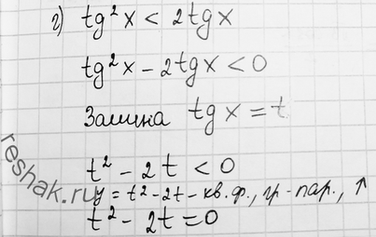 г) tg²x < 2tgx
tg²x - 2tgx < 0
Замина tgx = t
t² - 2t < 0
y = t² - 2t - кв.ф., гр-пар., ↑
t² - 2t = 0
reshak.ru